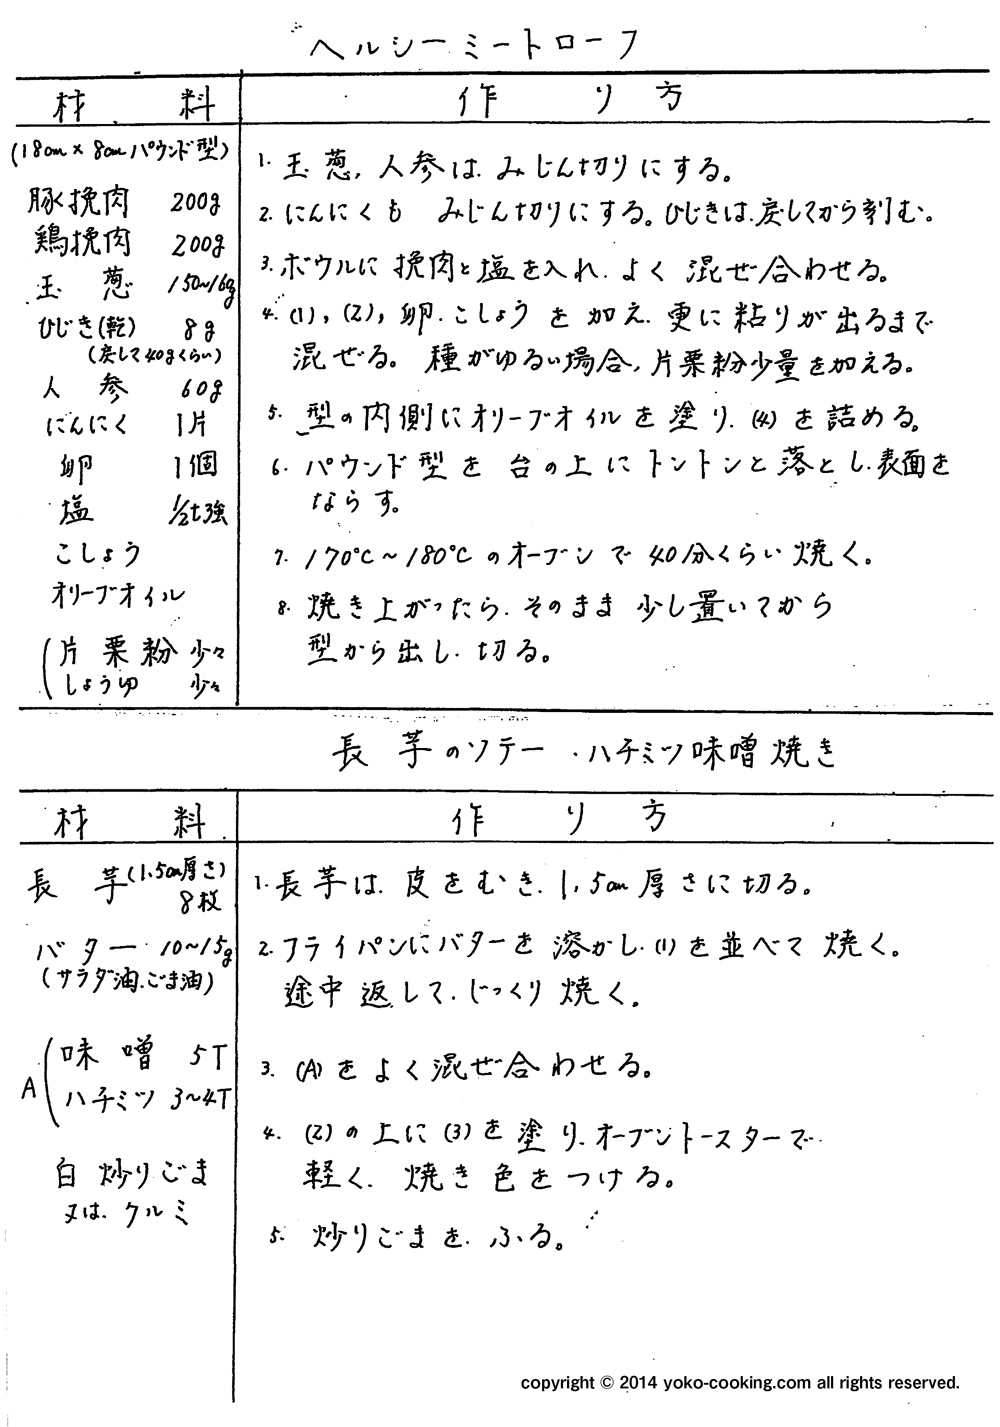 ヘルシーミートローフ
材料
作り方
(18cm×8cmパウンド型)
豚挽肉 200g
鶏挽肉 200g
玉葱 150~160g
ひじき(乾) 8g
(戻して40gくらい)
人参 60g
にんにく 1片
卵 1個
塩 1/2t強
こしょう
オリーブオイル
片栗粉 少々
しょうゆ 少々
1. 玉葱、人参は、みじん切りにする。
2. にんにくも みじん切りにする。ひじきは、戻してから刻む。
3. ボウルに 挽肉と塩を入れ、よく 混ぜ合わせる。
4. (1)，(2)，卵、こしょう を 加え、更に粘りが出るまで
混ぜる。 種がゆるい場合，片栗粉少量を加える。
5. 型の内側にオリーブオイルを塗り、(4)を詰める。
6. パウンド型を 台の上にトントンと落とし、表面を
ならす。
7. 170℃~180℃のオーブンで 40分くらい焼く。
8. 焼き上がったら、そのまま 少し置いてから
型から出し、切る。
長芋のソテー・ハチミツ味噌焼き
材料
作り方
長芋(1.5cm厚さ)
8枚
バター 10~15g
(サラダ油、ごま油)
A
味噌 5T
ハチミツ 3~4T
白炒りごま
又は、クルミ
1. 長芋は、皮をむき、1.5cm厚さに切る。
2. フライパンにバターを溶かし、(1)を並べて焼く。
途中返して、じっくり焼く。
3. (A)をよく混ぜ合わせる。
4. (2)の上に(3)を塗り、オーブントースターで
軽く、焼き色をつける。
5. 炒りごまを、ふる。
copyright © 2014 yoko-cooking.com all rights reserved.